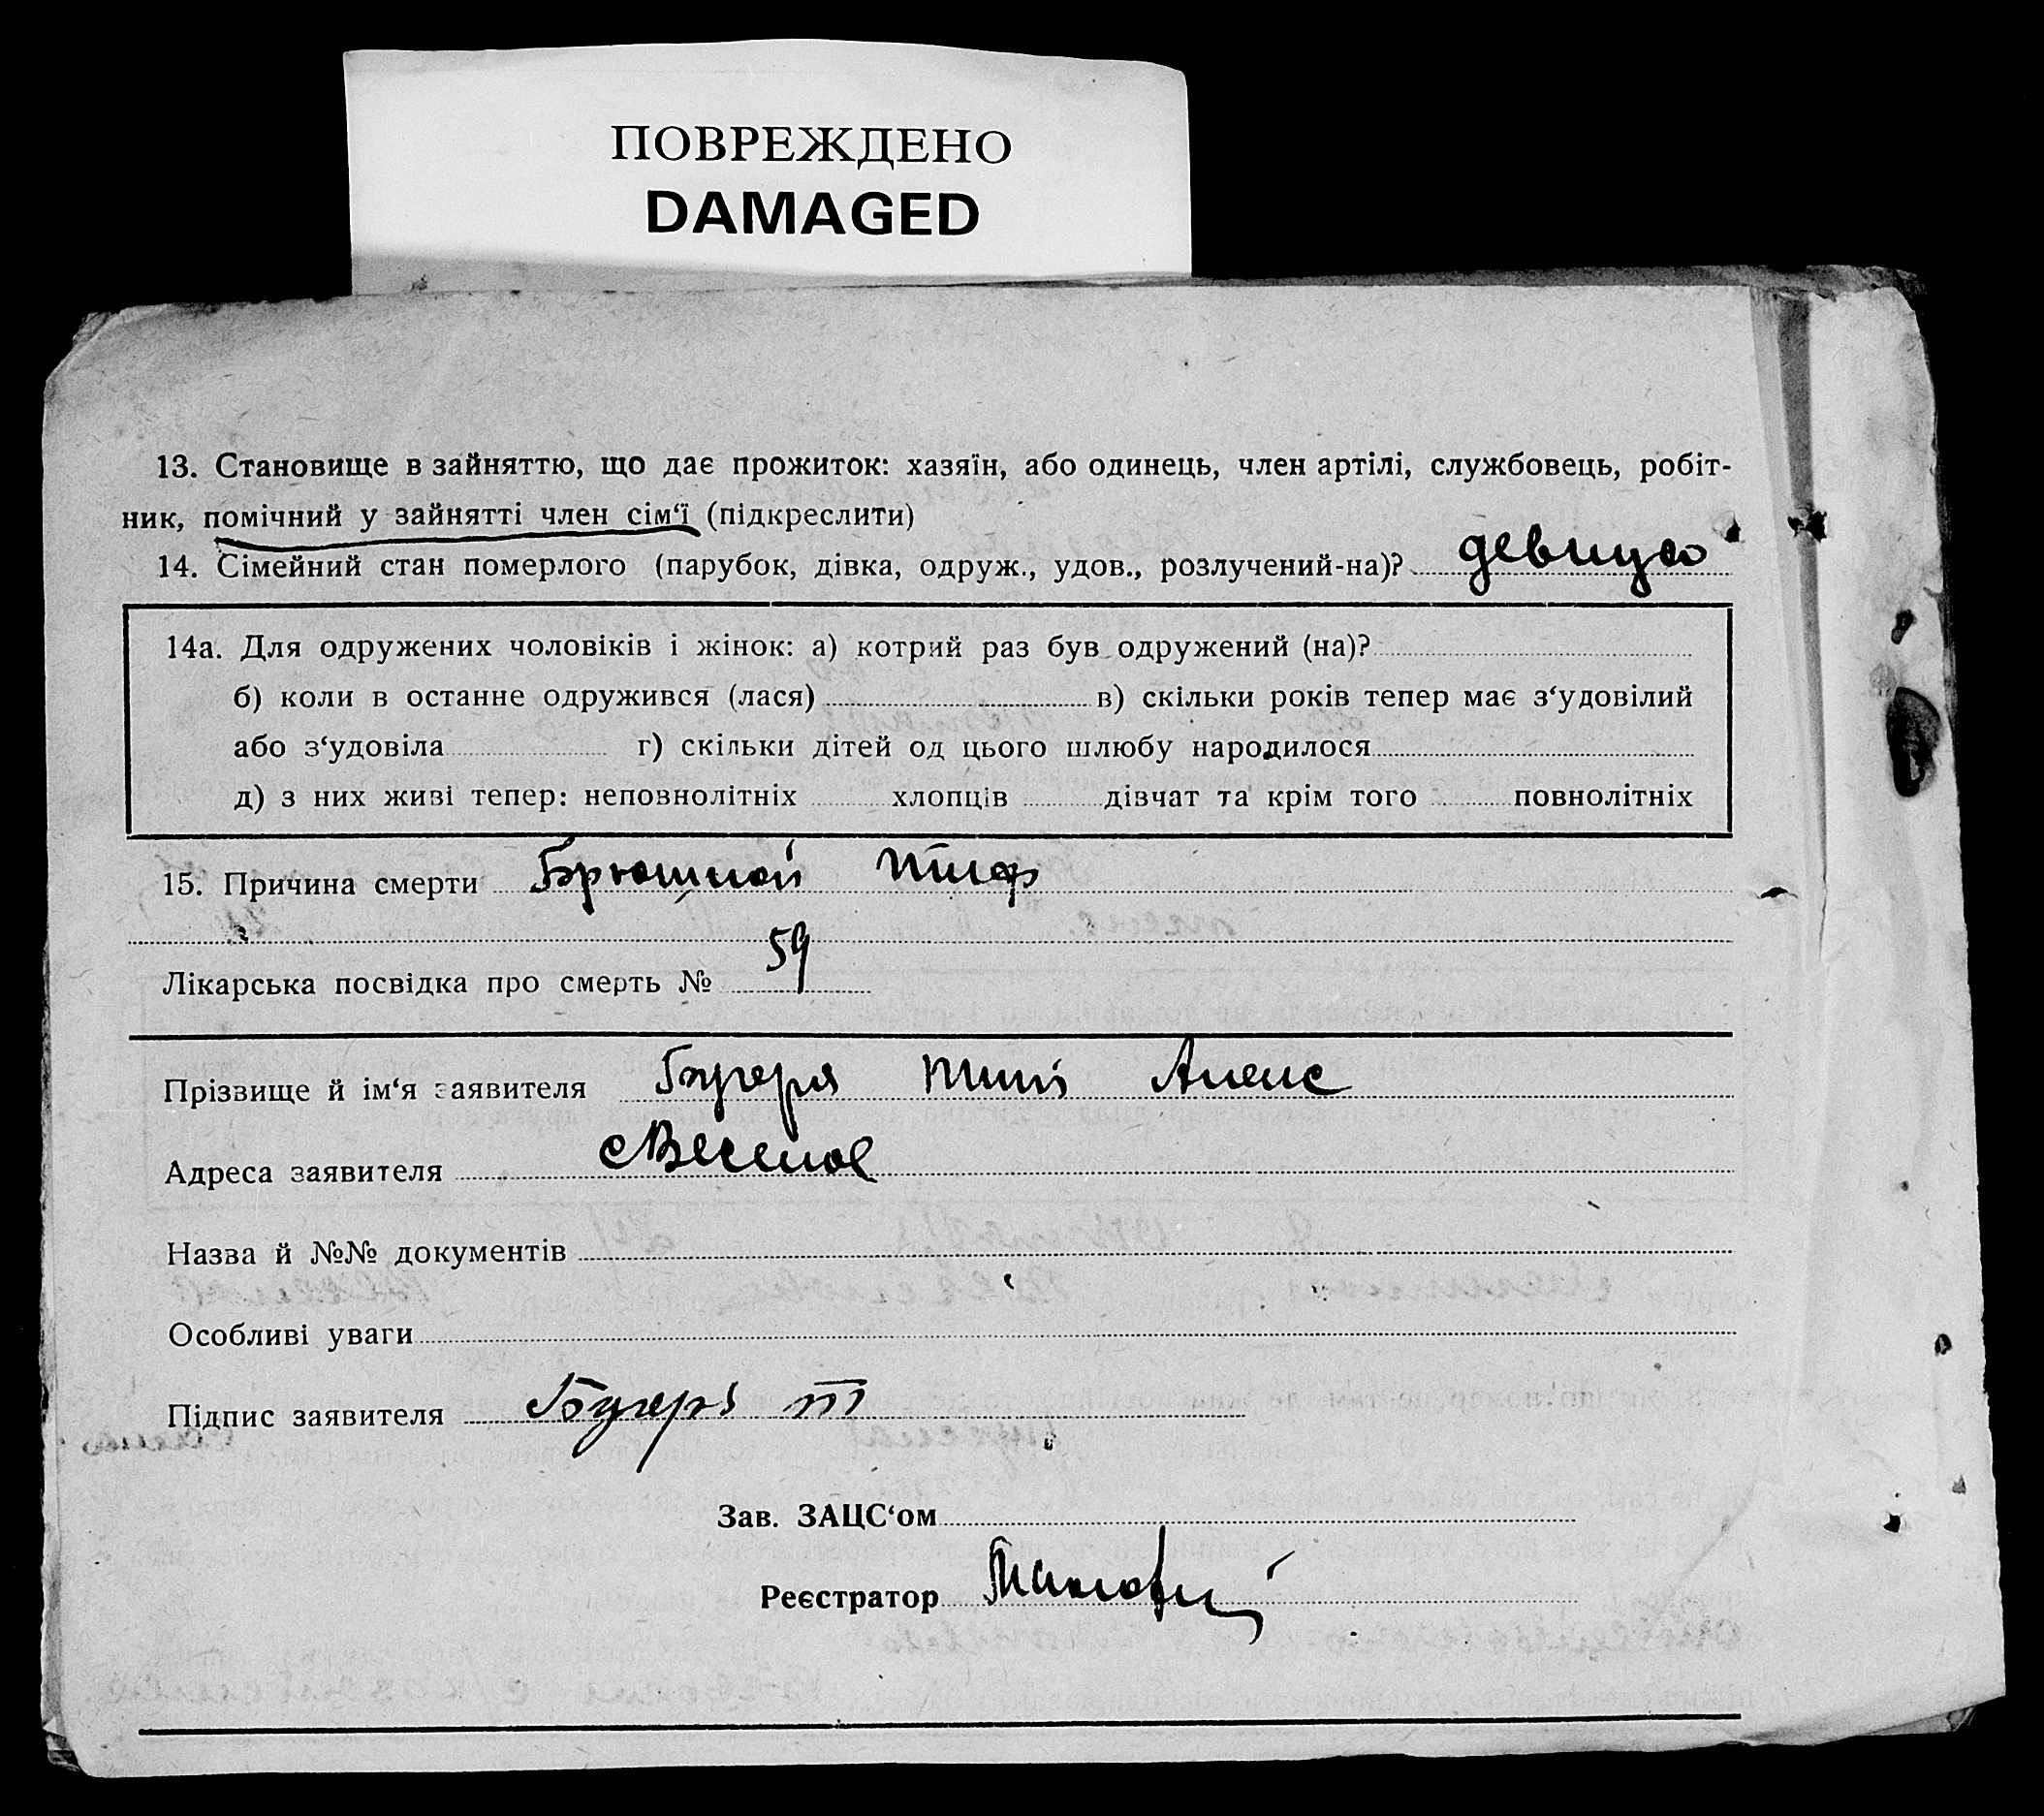 ПОВРЕЖДЕНО
DAMAGED
13. Становище в зайняттю, що дає прожиток: хазяїн, або одинець, член артілі, службовець, робіт-
ник, помічний у зайнятті член сім‘ї (підкреслити)
14. Сімейний стан померлого (парубок, дівка, одруж., удов., розлучений-на)? девицею
14а. Для одружених чоловіків і жінок: а) котрий раз був одружений (на)?
б) коли в останне одружився (лася) в) скільки років тепер має з‘удовілий
або з‘удовіла г) скільки дітей од цього шлюбу народилося
д) з них живі тепер: неповнолітніх хлопців дівчат та крім того повнолітніх
15. Причина смерти Брюшной тиф
Лікарська посвідка про смерть № 59
Прізвище й ім‘я заявителя Бугеря Тим Алекс
Адреса заявителя с Веселое
Назва й №№ документів
Особливі уваги
Підпис заявителя Бугеря Т
Зав. ЗАЦС‘ом
Реєстратор